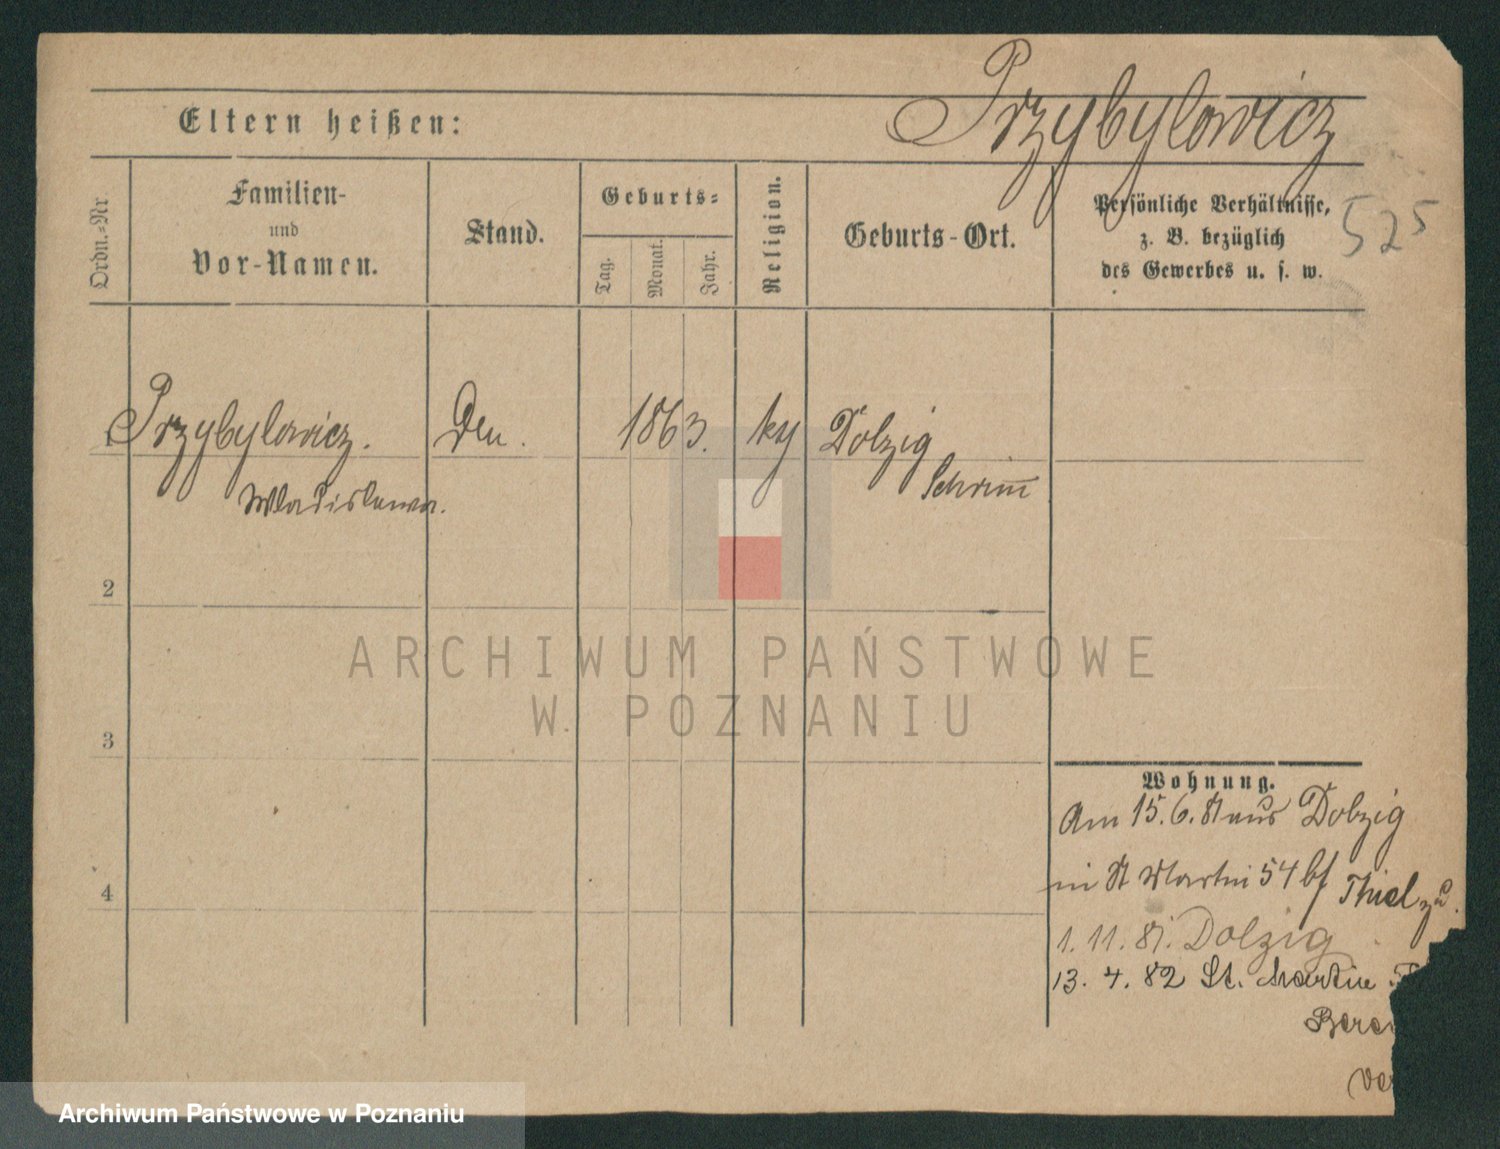 Przybylowicz
Eltern heißen:
525
Ordn.-Nr
Familien-
und
Vor-Namen.
Stand.
Geburts-
Tag.
Monat.
Jahr.
Religion.
Geburts-Ort.
Persönliche Verhältnisse,
z. B. bezüglich
des Gewerbes u. s. w.
1
Przybylowicz.
1863.
Dolzig
Wladislawa.
Schrimm
2
3
4
ARCHIWUM PAŃSTWOWE
W POZNANIU
Wohnung.
Am 15.6.81 aus Dolzig
in St Martin 54 bf Thiel
1.11.81. Dolzig
13.4.82 St. Martin
Archiwum Państwowe w Poznaniu